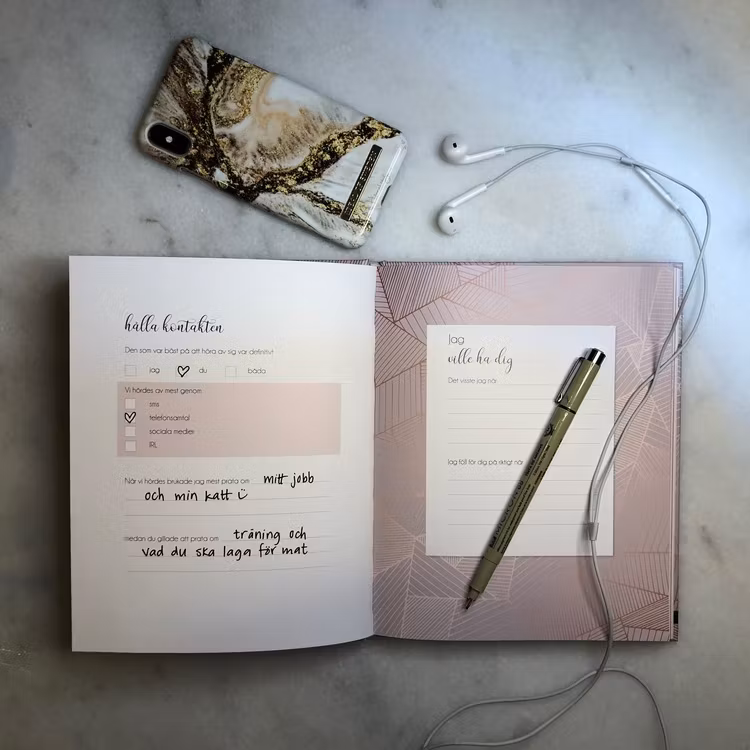 hålla kontakten
Den som var bäst på att höra av sig var definitivt
jag du båda
Vi hördes av mest genom:
sms
telefonsamtal
sociala medier
IRL
När vi hördes brukade jag mest prata om mitt jobb
och min katt
medan du gillade att prata om träning och
vad du ska laga för mat
Jag
ville ha dig
Det visste jag när
Jag föll för dig på riktigt när